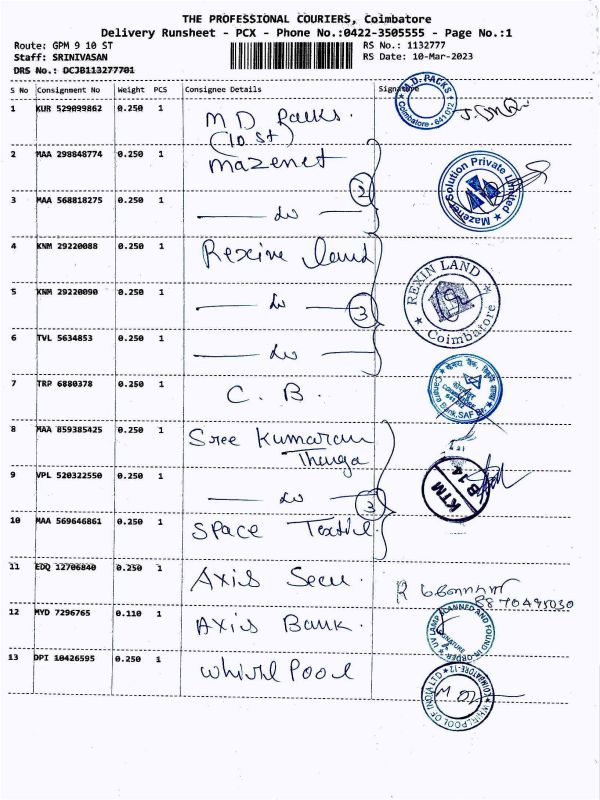 THE PROFESSIONAL COURIERS, Coimbatore
Delivery Runsheet - PCX - Phone No.:0422-3505555 - Page No.:1
Route: GPM 9 10 ST
RS No.: 1132777
Staff: SRINIVASAN
RS Date: 10-Mar-2023
DRS No.: DCJB113277701
S No Consignment No Weight PCS Consignee Details Signature
1 KUR 529099862 0.250 1 M D Packs.
(10 st)
M.D. PACKS
Coimbatore - 641 012
2 MAA 298848774 0.250 1 mazenet
3 MAA 568818275 0.250 1 do
2
Mazenet Solution Private Limited
4 KNM 29220088 0.250 1 Rexine land
5 KNM 29220090 0.250 1 do
3
REXIN LAND
Coimbatore
6 TVL 5634853 0.250 1 do
7 TRP 6880378 0.250 1 C. B.
Canara Bank, SAF Br.
8 MAA 859385425 0.250 1 Sree Kumaran
Thanga
9 VPL 520322550 0.250 1 do
3
KTM
B 14
10 MAA 569646861 0.250 1 Space Textile
11 EDQ 12706840 0.250 1 Axis Secu.
R
8870495030
12 MYD 7296765 0.110 1 Axis Bank.
UV LAMP SCANNED AND FOUND IN ORDER
SIGNATURE
13 DPI 10426595 0.250 1 whirl Pool
WHIRLPOOL OF INDIA LTD
COIMBATORE-12